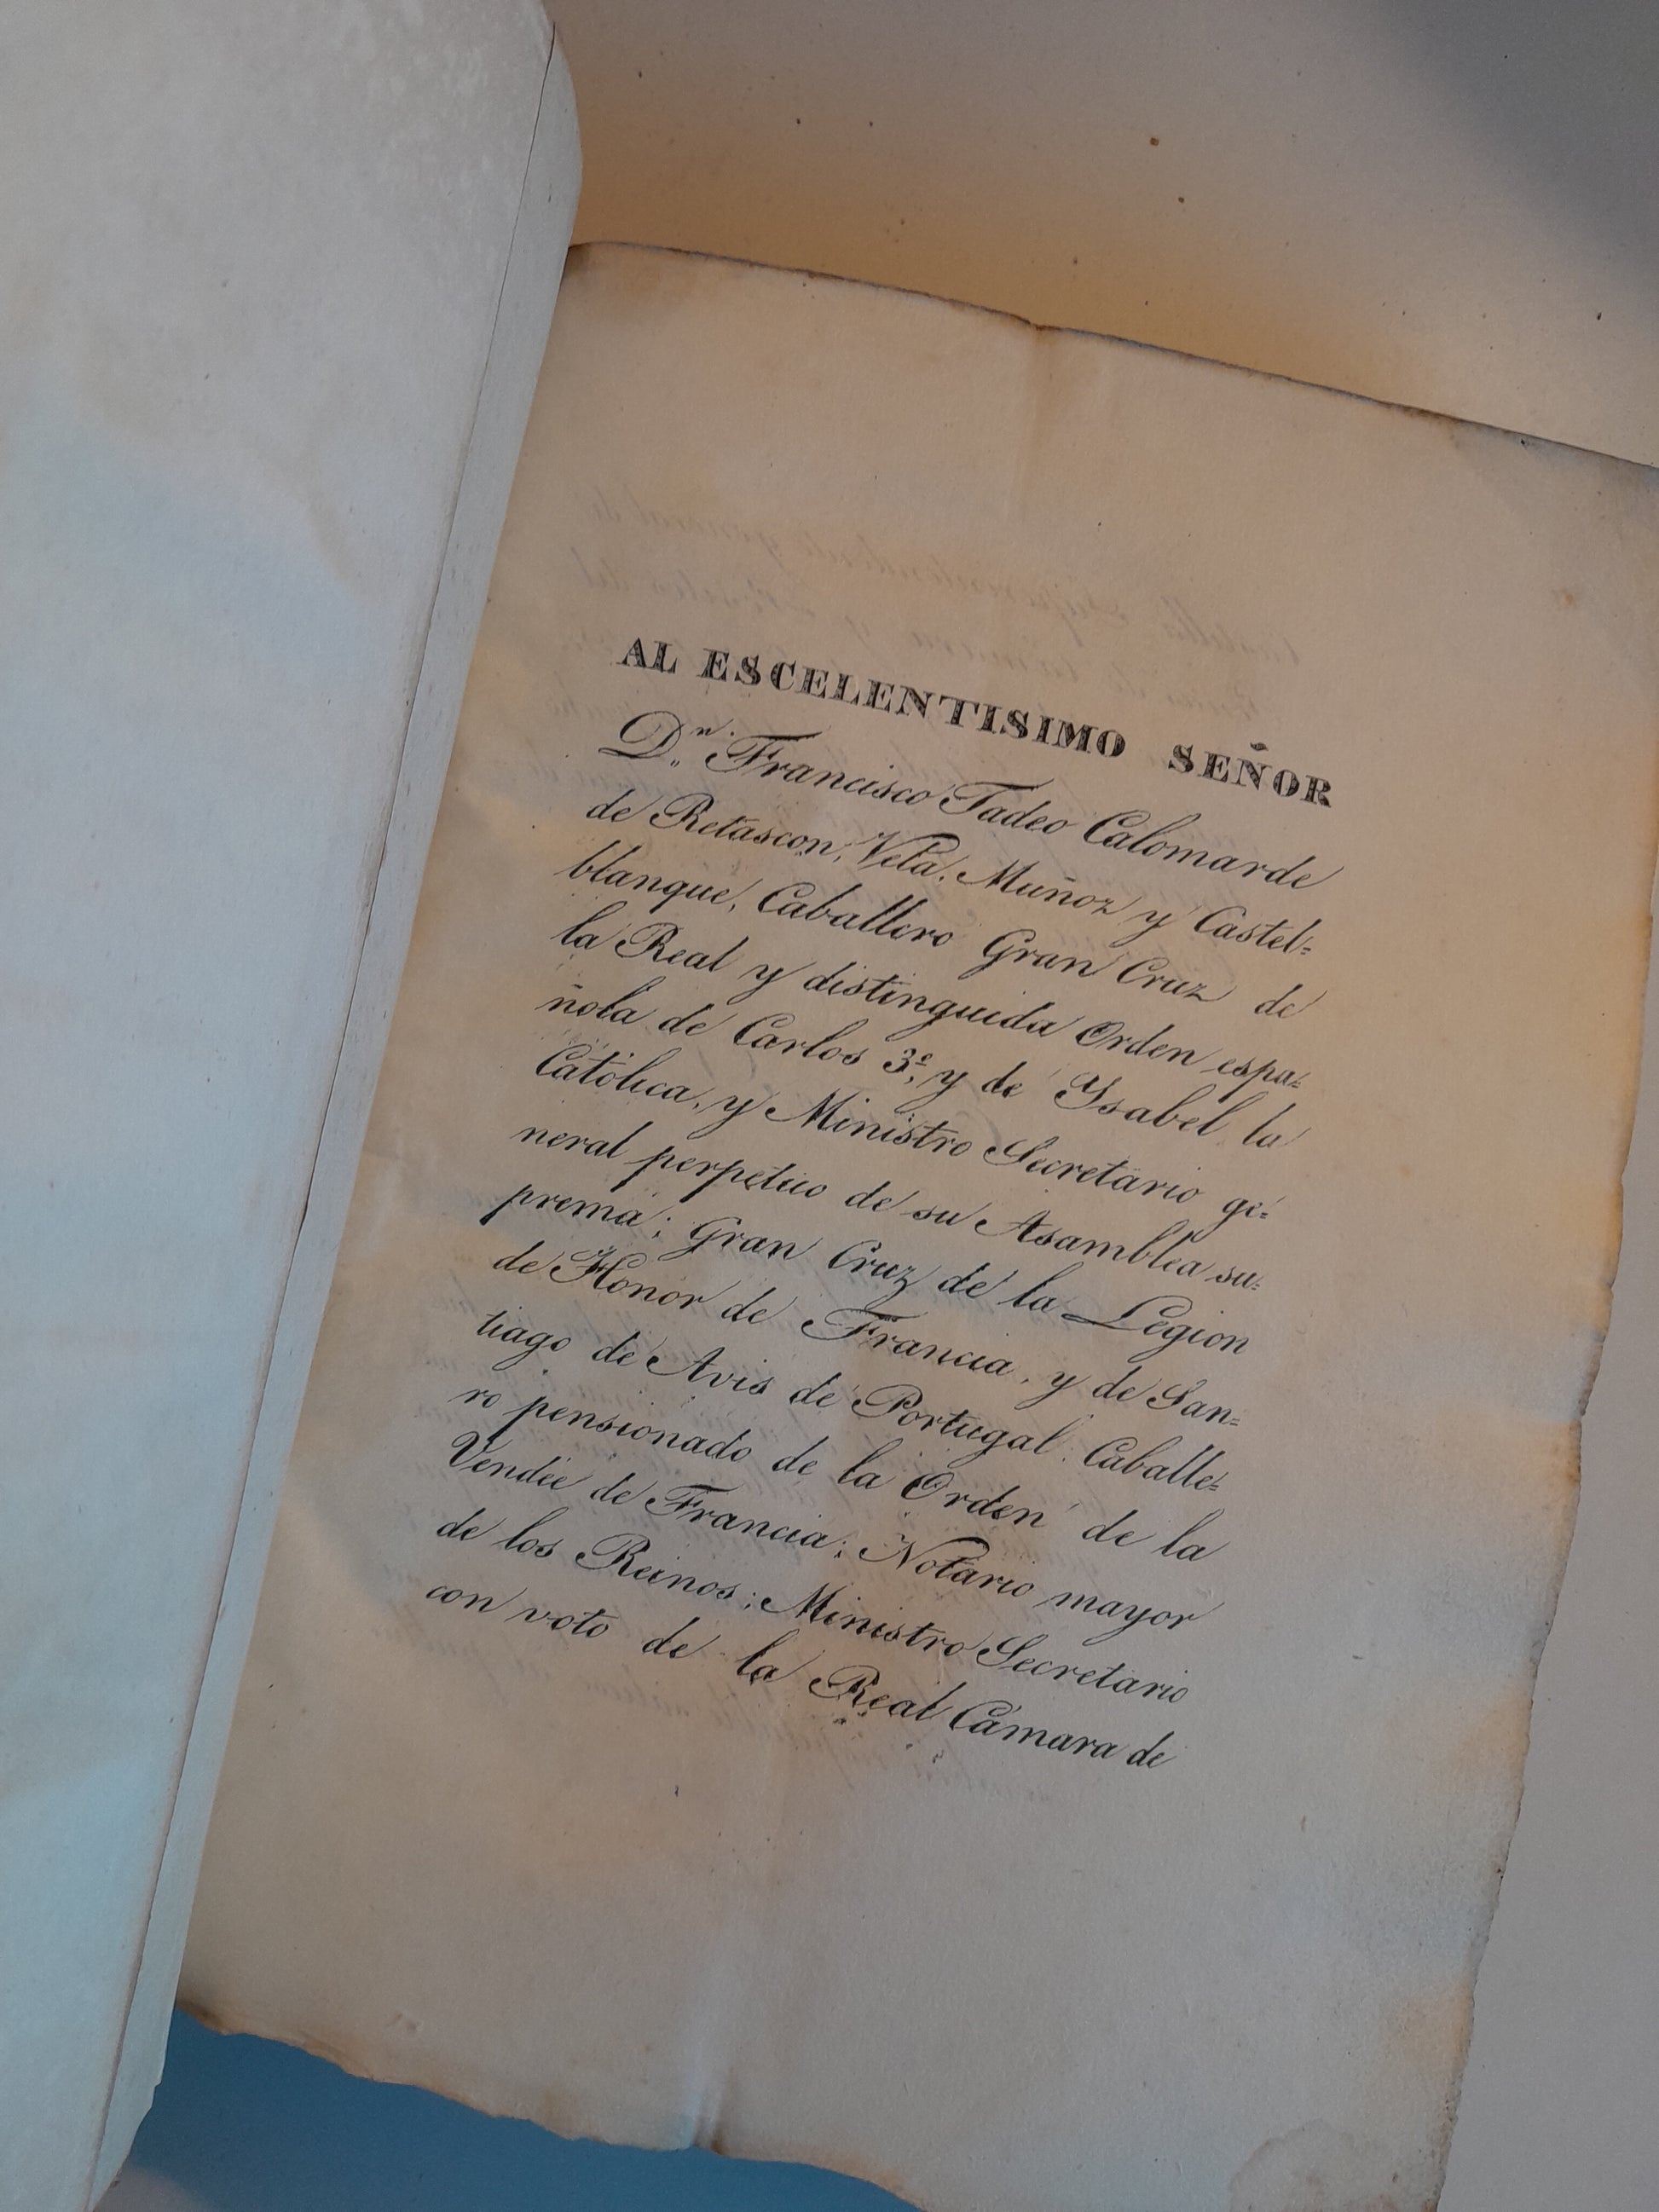 AL ESCELENTISIMO SEÑOR
Dn. Francisco Tadeo Calomarde
de Retascon, Vela, Muñoz y Castel=
blanque, Caballero Gran Cruz de
la Real y distinguida Orden espa=
ñola de Carlos 3º, y de Ysabel la
Católica, y Ministro Secretario ge=
neral perpetuo de su Asamblea su=
prema; Gran Cruz de la Legion
de Honor de Francia, y de San=
tiago de Avis de Portugal: Caballe=
ro pensionado de la Orden de la
Vendée de Francia; Notario mayor
de los Reinos; Ministro Secretario
con voto de la Real Cámara de